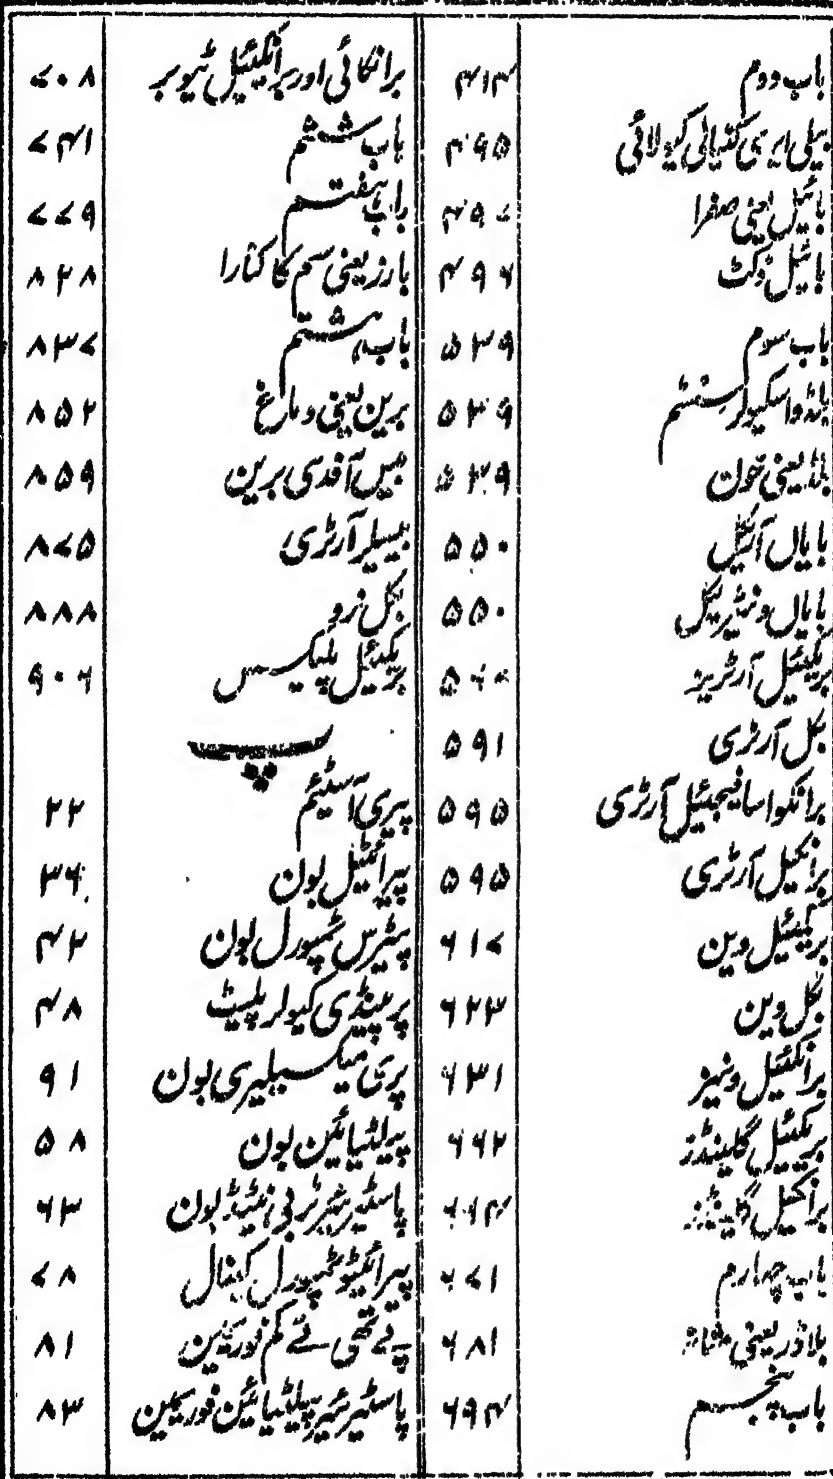 باب دوم ۴۱۴
بیلی ایری کنیالی کیولائی ۴۹۵
بائیل یعنی صفرا ۴۹۷
بائیل ڈکٹ ۴۹۶
باب سوم ۵۳۹
بلڈ واسکیولر سسٹم ۵۳۹
بلڈ یعنی خون ۵۳۹
بایاں آریکل ۵۵۰
بایاں ونٹریکل ۵۵۰
بریکیئل آرٹریز
بکل آرٹری ۵۹۱
برانکو اسافیجیئل آرٹری ۵۹۵
برانکیل آرٹری ۵۹۵
بریکیئل وین ۶۱۷
بکل وین ۶۲۳
برانکیئل وینز ۶۳۱
بریکیئل گلینڈز ۶۶۲
برانکیل گلینڈز
باب چہارم ۶۷۱
بلاڈر یعنی مثانہ ۶۸۱
باب پنجم ۶۹۴
برانکائی اور برانکیئل ٹیوبز ۷۰۸
باب ششم ۷۴۱
باب ہفتم ۷۷۹
بارز یعنی سم کا کنارا ۸۲۸
باب ہشتم ۸۳۷
برین یعنی دماغ ۸۵۲
بیس آف دی برین ۸۵۹
بیسلر آرٹری ۸۷۵
بکل نرو ۸۸۸
بریکیئل پلیکسس ۹۰۶
پ
پیری آسٹیئم ۲۲
پیرائیٹل بون ۳۶
پیٹرس ٹمپورل بون ۴۲
پرپینڈی کیولر پلیٹ ۴۸
پری میکسیلیری بون ۹۱
پیلیٹائین بون ۵۸
پاسٹیریئر ٹربی نیٹیڈ بون ۶۳
پیرائیٹو ٹمپورل کینال ۷۸
پے تھی ٹے کم فوریمین ۸۱
پاسٹیریئر پیلیٹائین فوریمین ۸۳